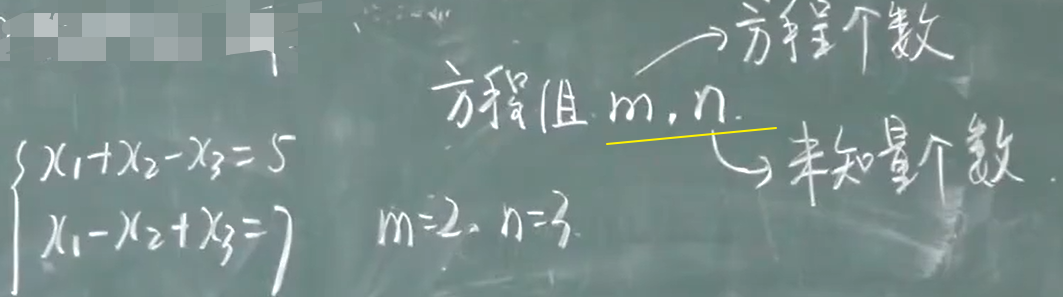 方程个数
方程组 m, n.
未知量个数.
x₁+x₂-x₃=5
x₁-x₂+x₃=7
m=2, n=3.